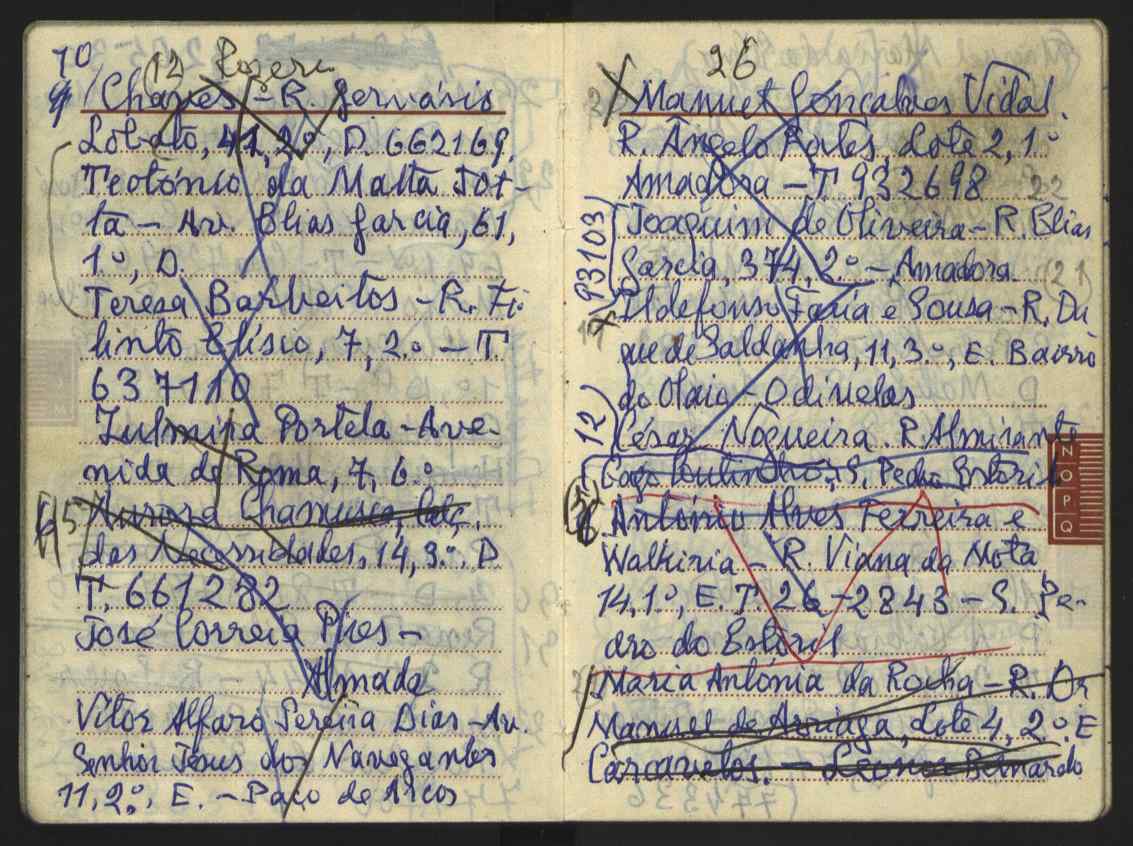 10
12 Rogers
Chaves - R. Gervásio
Lobato, 41, 2º, D. 662169.
Teotónio da Malta Tot-
ta - Av. Elias Garcia, 61,
1.º, D.
Teresa Barbeitos - R. Fi-
linto Elísio, 7, 2.º - T.
637110
Zulmira Portela - Ave-
nida de Roma, 7, 6.º
15 Aurora Chamusca, Calç.
das Necessidades, 14, 3.º, D
T. 661282
José Correia Pires -
Almada
Vitor Alfaro Pereira Dias - Av.
Senhor Jesus dos Navegantes
11, 2.º, E. - Paço de Arcos
26
Manuel Gonçalves Vidal.
R. Ângelo Portes, Lote 2, 1.º
Amadora - T. 932698 22
Joaquim de Oliveira - R. Elias
Garcia, 374, 2.º - Amadora. 21
93103
Ildefonso Faria e Sousa - R. Du
que de Saldanha, 11, 3.º, E. Bairro
do Olaio - Odivelas
12
César Nogueira. R. Almirante
Gago Coutinho, S. Pedro Estoril
António Alves Ferreira e
Walkiria - R. Viana da Mota
14, 1.º, E. T. 26-2843 - S. Pe-
dro do Estoril
Maria Antónia da Rocha - R. Dr
Manuel de Arriaga, Lote 4, 2.º E
Carcavelos. - Leonor Bernardo
N
O
P
Q